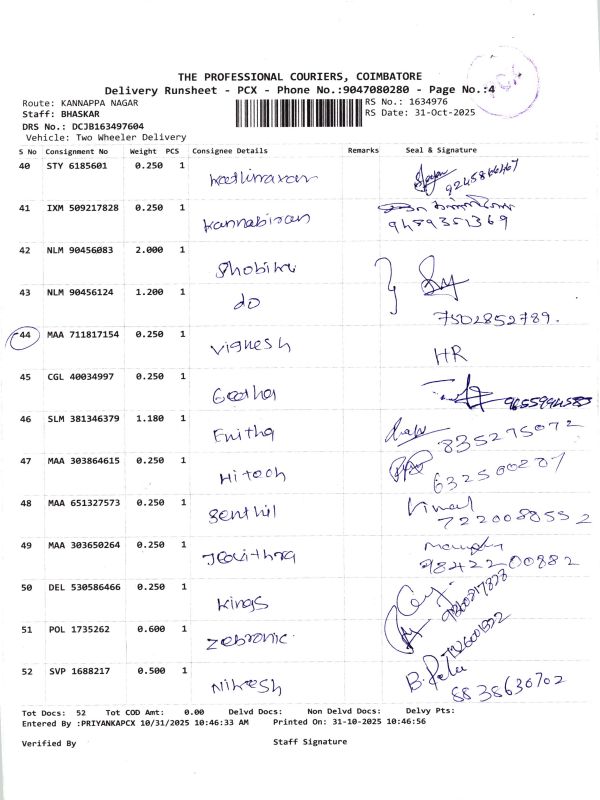 THE PROFESSIONAL COURIERS, COIMBATORE
Delivery Runsheet - PCX - Phone No.:9047080280 - Page No.:4
Route: KANNAPPA NAGAR
RS No.: 1634976
Staff: BHASKAR
RS Date: 31-Oct-2025
DRS No.: DCJB163497604
Vehicle: Two Wheeler Delivery
S No Consignment No Weight PCS Consignee Details Remarks Seal & Signature
40 STY 6185601 0.250 1
41 IXM 509217828 0.250 1 Kannabiran
9489351369
42 NLM 90456083 2.000 1
43 NLM 90456124 1.200 1 do
7502852789.
44 MAA 711817154 0.250 1 Vignesh HR
45 CGL 40034997 0.250 1 Geetha 9655994583
46 SLM 381346379 1.180 1 835275072
47 MAA 303864615 0.250 1 Hitech
48 MAA 651327573 0.250 1 Senthil Vimal
7220088552
49 MAA 303650264 0.250 1
9842200882
50 DEL 530586466 0.250 1 Kings
51 POL 1735262 0.600 1 Zebronic
52 SVP 1688217 0.500 1 Nikesh
8838630702
Tot Docs: 52 Tot COD Amt: 0.00 Delvd Docs: Non Delvd Docs: Delvy Pts:
Entered By :PRIYANKAPCX 10/31/2025 10:46:33 AM Printed On: 31-10-2025 10:46:56
Verified By Staff Signature